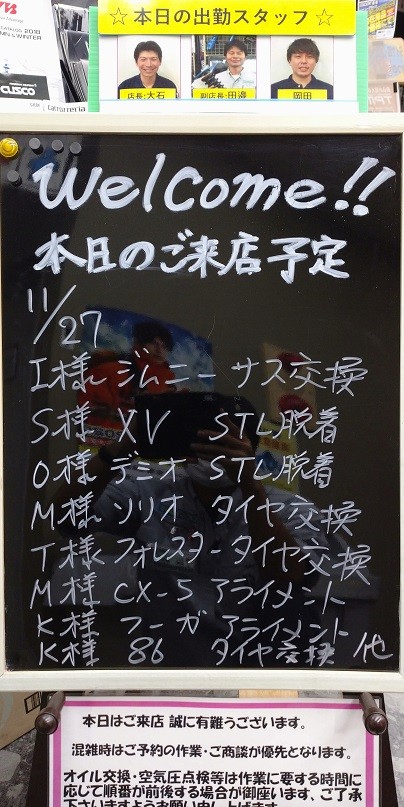 ☆ 本日の出勤スタッフ ☆
店長:大石
副店長:田邉
岡田
CUSCO
carrozzeria
Welcome!!
本日のご来店予定
11/27
I様 ジムニー サス交換
S様 XV STL脱着
O様 デミオ STL脱着
M様 ソリオ タイヤ交換
T様 フォレスター タイヤ交換
M様 CX-5 アライメント
K様 フーガ アライメント
K様 86 タイヤ交換 他
本日はご来店 誠に有難うございます。
混雑時はご予約の作業・ご商談が優先となります。
オイル交換・空気圧点検等は作業に要する時間に
応じて順番が前後する場合が御座います、ご了承